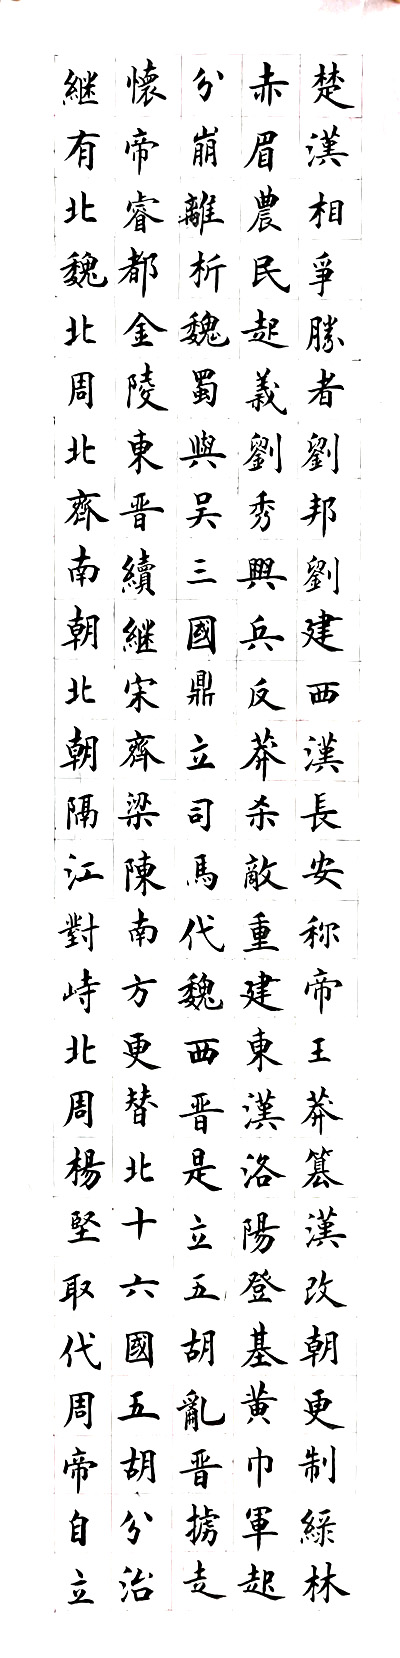 楚漢相爭勝者劉邦劉建西漢長安称帝王莽篡漢改朝更制綠林
赤眉農民起義劉秀興兵反莽杀敵重建東漢洛陽登基黄巾軍起
分崩離析魏蜀與吴三國鼎立司馬代魏西晋是立五胡亂晋掳走
懷帝睿都金陵東晋續継宋齊梁陳南方更替北十六國五胡分治
継有北魏北周北齊南朝北朝隔江對峙北周楊堅取代周帝自立